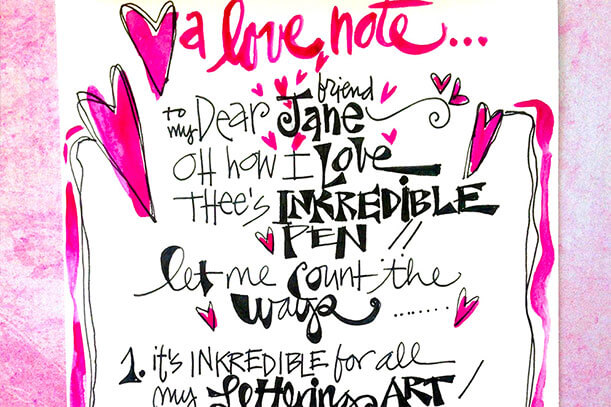 a love note...
to my Dear friend Jane
OH how I Love
THEE'S INKREDIBLE
PEN !!
let me count the
ways ........
1. it's INKREDIBLE for all
my Lettering ART !